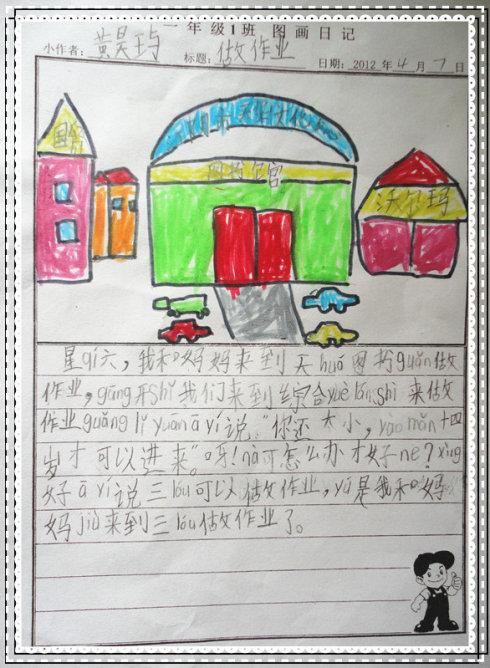 一年级1班 图画日记
小作者: 黄昊 标题: 做作业 日期: 2012 年 4 月 7 日
沃尔玛
星qí六，我和妈妈来到天huá图书guǎn做
作业，gāng开shǐ我们来到综合yuè lǎn shì 来做
作业guǎng lǐ yuán ā yí说：“你还太小，yào mǎn十四
岁才可以进来”。呀！nà可怎么办才好ne？xìng
好ā yí说三lóu可以做作业，yú是我和妈
妈jiù来到三lóu做作业了。